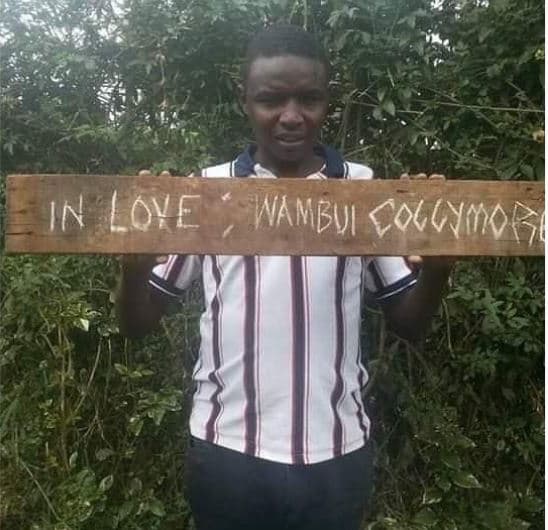 IN LOVE ; WAMBUI COGGYMORE